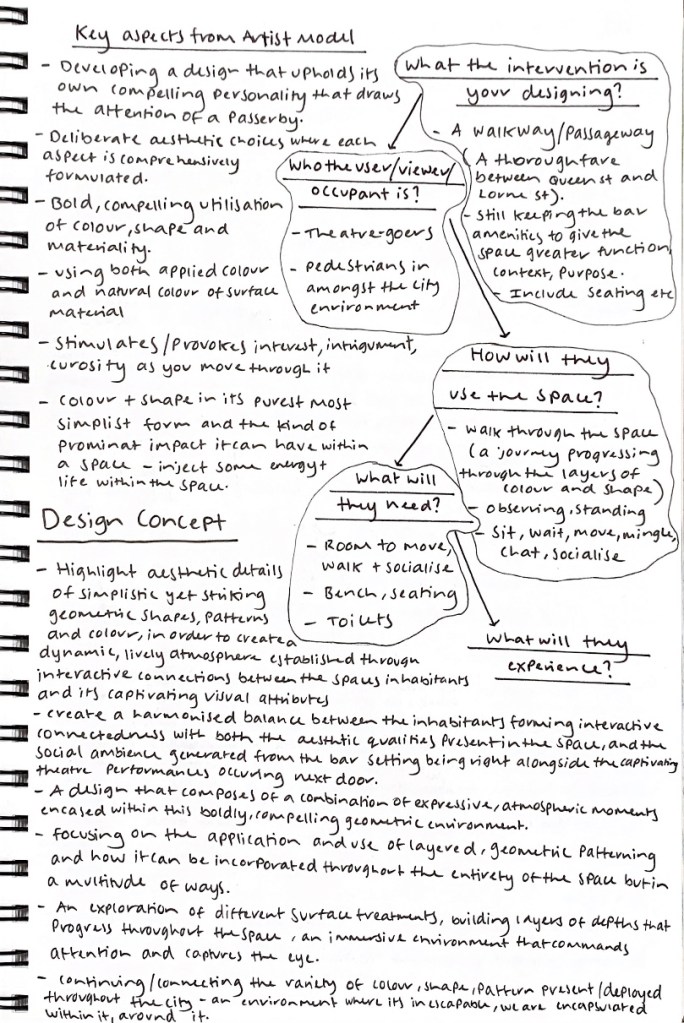 Key aspects from Artist Model
- Developing a design that upholds its
own compelling personality that draws
the attention of a passerby.
- Deliberate aesthetic choices where each
aspect is comprehensively
formulated.
- Bold, compelling utilisation
of colour, shape and
materiality.
- using both applied colour
and natural colour of surface
material
- Stimulates/Provokes interest, intrigument,
curosity as you move through it
- colour + shape in its purest most
simplist form and the kind of
prominat impact it can have within
a space - inject some energy +
life within the space.
What the intervention is
your designing?
- A walkway/passageway
(A thoroughfare
between Queen st and
Lorne st).
- still keeping the bar
amenities to give the
space greater function,
context, purpose.
- Include seating etc
Who the user/viewer/
occupant is?
- Theatre-goers
- pedestrians in
amongst the city
environment
How will they
use the space?
- walk through the space
(a journey progressing
through the layers of
colour and shape)
- observing, standing
- Sit, wait, move, mingle,
chat, socialise
What will
they need?
- Room to move,
walk + socialise
- Bench, seating
- Toilets
What will they
experience?
Design Concept
- Highlight aesthetic details
of simplistic yet striking
geometric shapes, patterns
and colour, in order to create a
dynamic, lively atmosphere established through
interactive connections between the spaces inhabitants
and its captivating visual attributes
- create a harmonised balance between the inhabitants forming interactive
connectedness with both the aesthtic qualities present in the space, and the
social ambience generated from the bar setting being right alongside the captivating
theatre performances occuring next door.
- A design that composes of a combination of expressive, atmospheric moments
encased within this boldly, compelling geometric environment.
- focusing on the application and use of layered, geometric patterning
and how it can be incorporated throughout the entirety of the space but in
a multitude of ways.
- An exploration of different surface treatments, building layers of depths that
progress throughout the space, an immersive environment that commands
attention and captures the eye.
- continuing/connecting the variety of colour, shape, pattern present/deployed
throughout the city - an environment where its inescapable, we are encapsulated
within it, around it.